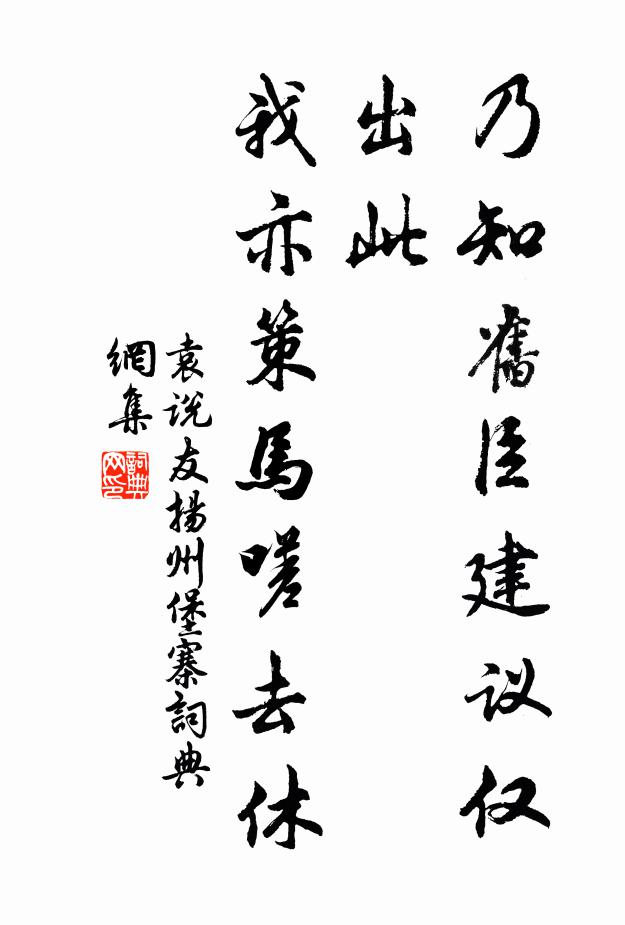 乃知舊臣建议仅
出此
我亦策馬嗟去休
袁说友揚州堡寨詞典
網集
詞典
网印